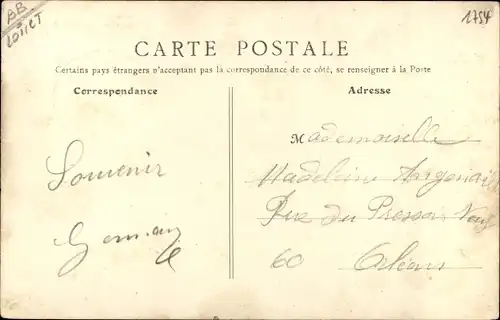 BB
LOIRET
1754
CARTE POSTALE
Certains pays étrangers n'acceptant pas la correspondance de ce côté, se renseigner à la Poste
Correspondance
Adresse
Mademoiselle
Madeleine
Rue du Pressoir Neuf
60 Orléans
Souvenir